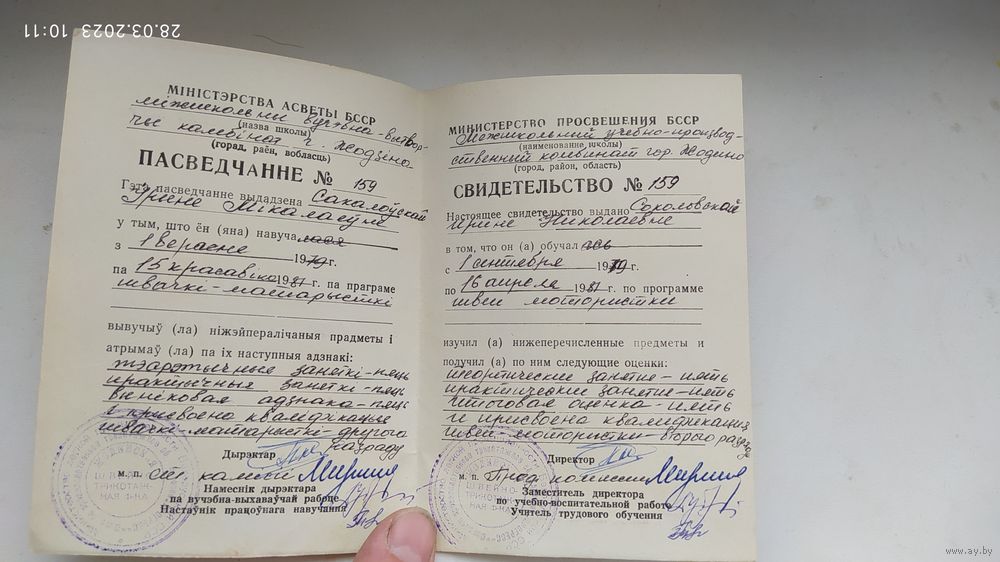 28.03.2023 10:11
МІНІСТЭРСТВА АСВЕТЫ БССР
міжшкольны вучэбна-вытвор-
(назва школы)
чы камбінат г. Жодзіна
(горад, раён, вобласць)
ПАСВЕДЧАННЕ № 159
Гэта пасведчанне выдадзена Сакалоўскай
Ірыне Мікалаеўне
у тым, што ён (яна) навучалася
з 1 верасня 1979 г.
па 15 красавіка 1981 г. па праграме
швачкі-матарысткі
вывучыў (ла) ніжэйпералічаныя прадметы і
атрымаў (ла) па іх наступныя адзнакі:
тэарэтычныя заняткі-пяць
практычныя заняткі-пяць
выніковая адзнака-пяць
і прысвоена кваліфікацыя
швачкі-матарысткі-другога
разраду
Дырэктар
м. п.
Намеснік дырэктара
па вучэбна-выхаваўчай рабоце
Настаўнік працоўнага навучання
МИНИСТЕРСТВО ПРОСВЕЩЕНИЯ БССР
Межшкольный учебно-производ-
(наименование школы)
ственный комбинат гор. Жодино
(город, район, область)
СВИДЕТЕЛЬСТВО № 159
Настоящее свидетельство выдано Соколовской
Ирине Николаевне
в том, что он (а) обучалась
с 1 сентября 1979 г.
по 16 апреля 1981 г. по программе
швеи мотористки
изучил (а) нижеперечисленные предметы и
получил (а) по ним следующие оценки:
теоретические занятие-пять
практические занятие-пять
итоговая оценка-пять
и присвоена квалификация
швеи-мотористки-второго разряда
Директор
м. п. Пред комиссии
Заместитель директора
по учебно-воспитательной работе
Учитель трудового обучения
www.ay.by